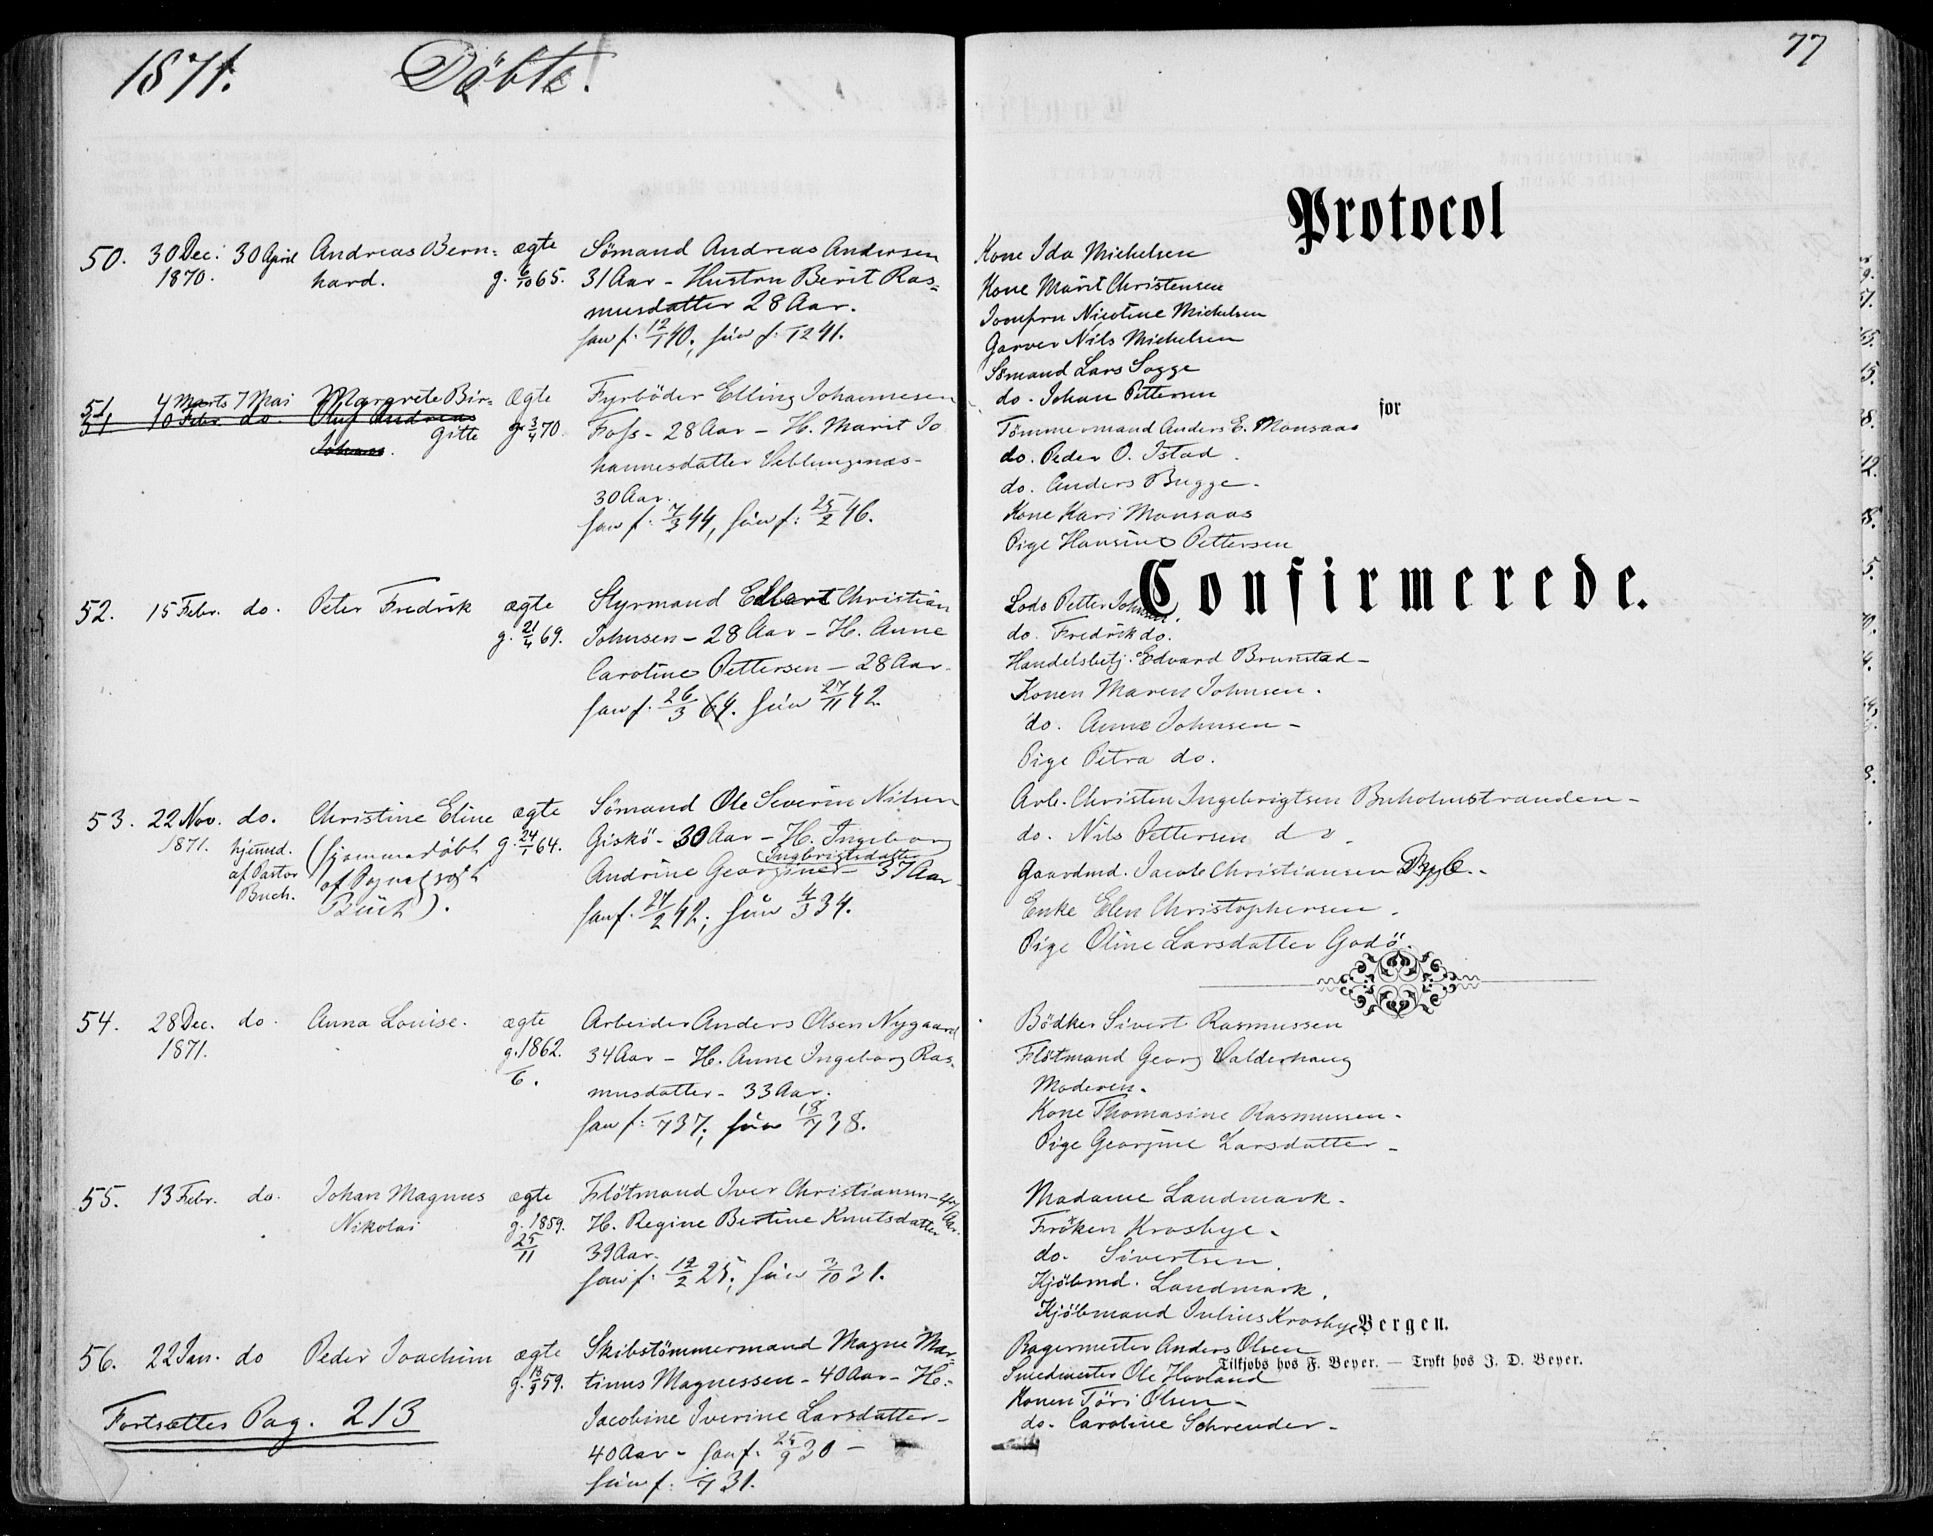 1871. Døbte.
77
Protocol
for
Confirmerede.
50. 30 Dec. 1870. 30 April Andreas Bern= ægte Sömand Andreas Andersen
hard. g. 6/10 65. 31 Aar - Hustru Berit Ras=
musdatter 28 Aar.
han f. 12/1 40, hun f. 1241.
Kone Ida Michelsen
Kone Marit Christensen
Jomfru Nicoline Michelsen
Garver Nils Michelsen
Sömand Lars Sogge
do. Johan Pettersen
51. 4 Marts 7 Mai Margrete Bir= Ægte Fyrböder Elling Johannesen
51 10 Febr. do. Oluf Andreas
Gitte g. 3/4 70. Foss - 28 Aar - H. Marit Jo
Johan.
hannesdatter Veblungsnæs -
30 Aar.
han f. 7/3 44, hun f: 25/2 46.
Tömmermand Anders E. Monsaas
do. Peder O. Istad.
do. Anders Bugge.
Kone Kari Monsaas
Pige Hansine Pettersen
52. 15 Febr. do. Peter Fredrik ægte Styrmand Edvart Christian
g. 21/4 69. Johnsen - 28 Aar - H. Anne
Caroline Pettersen - 28 Aar.
han f. 26/3 64. hun 27/11 42.
Lods Petter Johnsen.
do. Fredrik do.
Handelsbetj. Edvard Brunstad -
Konen Maren Johnsen.
do. Anne Johnsen -
Pige Petra do.
53. 22 Nov. do. Christine Eline ægte Sömand Ole Severin Nilsen
1871. hjemd. (hjemmedöbt g. 24/1 64. Giskö - 30 Aar - H. Ingeborg
af Pastor Buch. af Buch). Ingbrigtsdatter
Andrine Georgine - 37 Aar
han f. 27/2 42; hun 4/3 34.
Arb. Christen Ingebrigtsen Buholmstranden -
do. Nils Pettersen do
Gaardmd. Jacob Christiansen
Enke Elen Christophersen.
Pige Oline Larsdatter Godö.
54. 28 Dec. do. Anna Louise. ægte Arbeider Anders Olsen Nygaard
1871. g. 1862. 34 Aar - H. Anne Ingeborg Ras-
/6. musdatter - 33 Aar.
han f: /7 37; hun 18/7 38.
Bödker Sivert Rasmussen
Flötmand Georg Valderhaug
Moderen.
Kone Thomasine Rasmussen -
Pige Georgine Larsdatter -
55. 13 Febr. do. Johan Magnus ægte Flötmand Iver Christiansen - Aar.
Nikolai g. 1859. H. Regine Bertine Knutsdatter
25/11 39 Aar.
han f. 12/2 25; hun 3/10 31.
Madame Landmark.
Fröken Krosbye.
do. Sivertsen.
Kjöbmd. Landmark.
Kjöbmand Julius Krosbye
Bergen.
56. 22 Jan. do Peder Joachim ægte Skibstömmermand Magne Mar=
g. 13/9 59. tinus Magnessen - 40 Aar - H.
Jacobine Iverine Larsdatter -
40 Aar - han f. 25/9 30 -
hun f: /7 31.
Bagermester Anders Olsen
Tilkjøbs hos F. Beyer. — Trykt hos J. D. Beyer.
Smedmester Ole Hovland
Konen Töri Olsen -
do. Caroline Schreuder -
Fortsættes Pag. 213